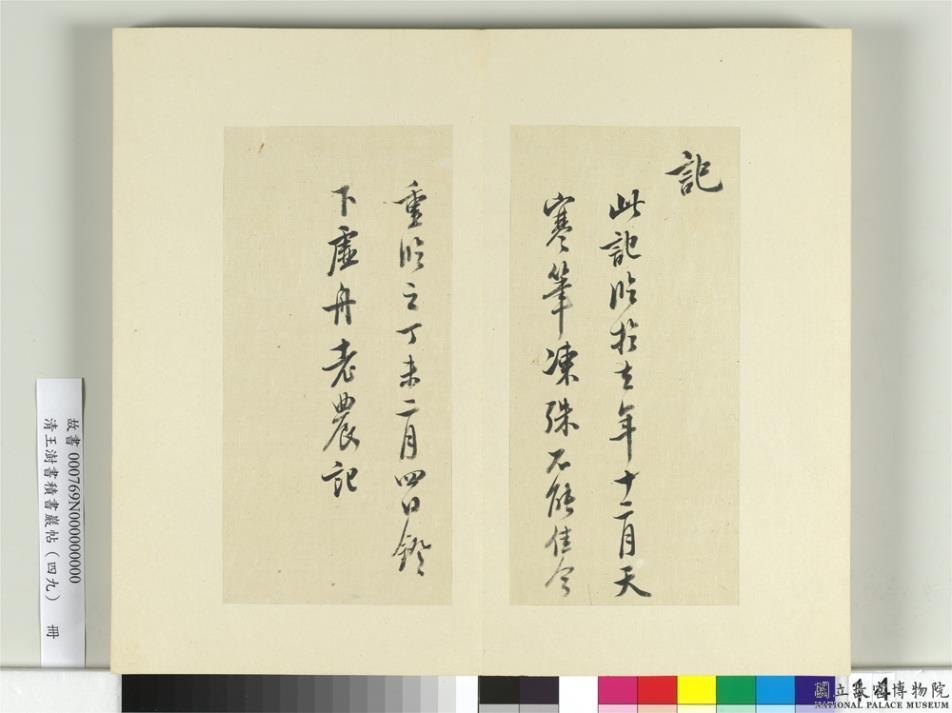 記
此記臨於去年十二月天
寒筆凍殊不能佳今
重臨之丁未二月四日鐙
下虛舟老農記
故書 000769N000000000
清王澍書積書巖帖（四九） 冊
國立故宮博物院
NATIONAL PALACE MUSEUM